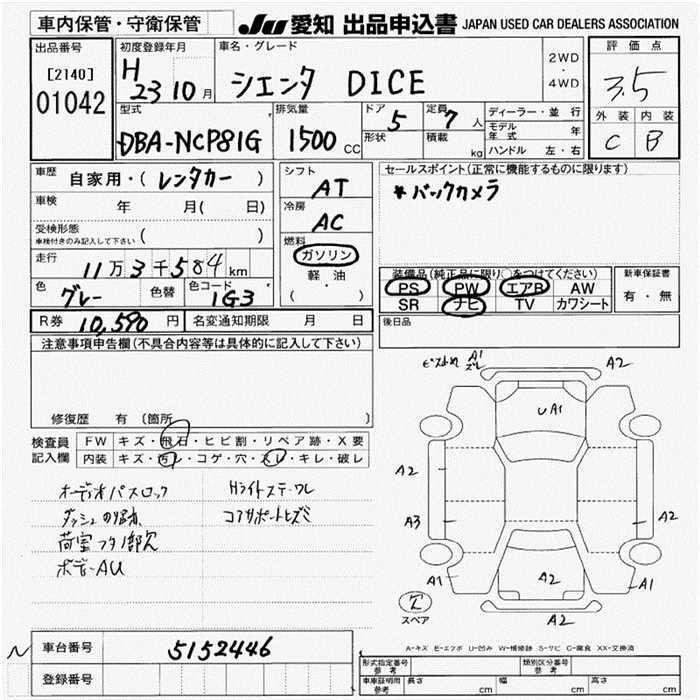 車内保管・守衛保管
JU 愛知 出品申込書 JAPAN USED CAR DEALERS ASSOCIATION
出品番号
[2140]
01042
初度登録年月
H23 10月
車名・グレード
シエンタ DICE
2WD
・
4WD
評価点
3.5
外装 内装
C B
型式
DBA-NCP81G
排気量
1500 CC
ドア 5
形状
定員 7 人
積載 kg
ディーラー・並行
モデル年式 年
ハンドル 左・右
車歴 自家用・(レンタカー)
車検 年 月( 日)
受検形態
車検付きのみ記入して下さい ( )
走行 11万3千584km
色 グレー 色替 色コード 1G3
シフト AT
冷房 AC
燃料
ガソリン
軽油
( )
セールスポイント(正常に機能するものに限ります)
*バックカメラ
装備品(純正品に限り○をつけてください)
PS PW エアB AW
SR ナビ TV カワシート
新車保証書
有・無
R券 10,590円 名変通知期限 月 日
後日品
注意事項申告欄(不具合内容等は具体的に記入して下さい)
修復歴 有(箇所 )
検査員記入欄
FW キズ・飛石・ヒビ割・リペア跡・X要
内装 キズ・汚レ・コゲ・穴・スレ・キレ・破レ
オーディオパスロック
Hライトステーワレ
コアサポートヒズミ
荷室フタ1部欠
ボデーAU
A1
ズレ
A2
UA1
A2
A3
A2
A1
A2
A1
A2
スペア
A-キズ E-エクボ U-凹み W-補修跡 S-サビ C-腐食 XX-交換済
車台番号 5152446
登録番号
形式指定番号
参考
類別区分番号
参考
車庫証明用
参考
長さ cm
幅 cm
高さ cm